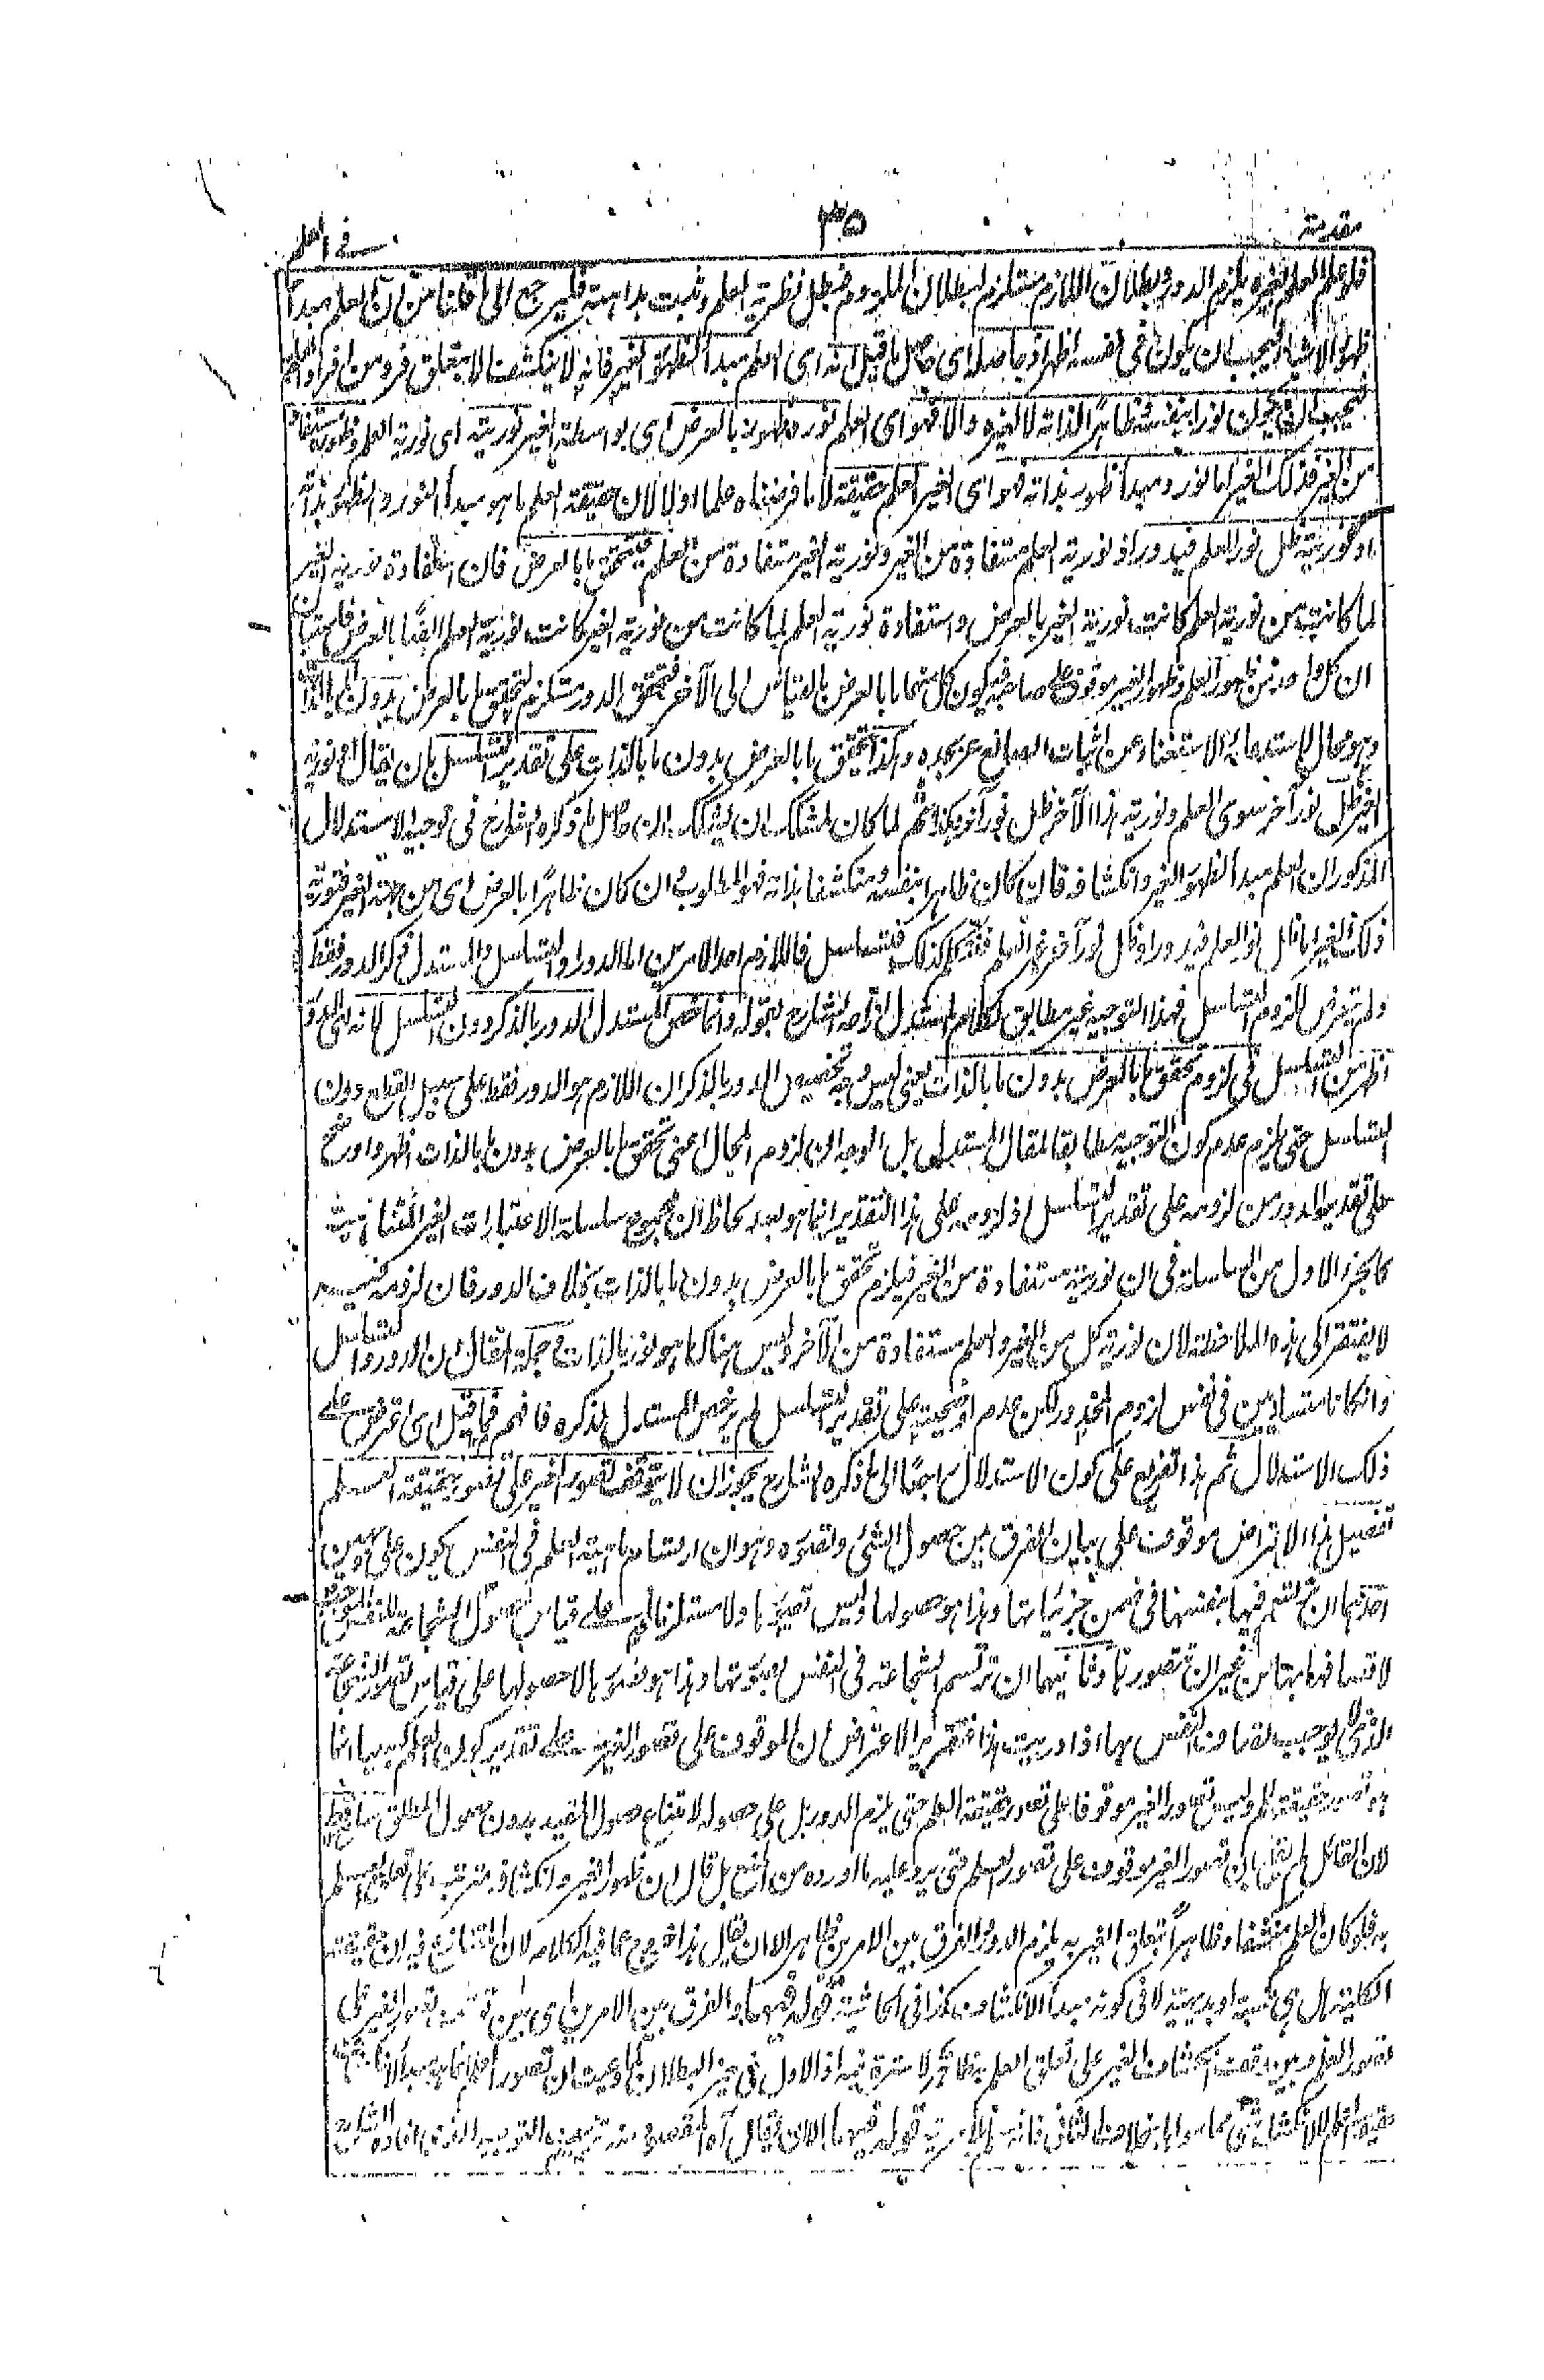 مقدمة ٣٥ في العلم
فلو علم العلم بغيره يلزم الدور وبطلان اللازم مستلزم لبطلان الملزوم فبطل نظرية العلم وثبت بداهته فليرجع الى ما قلنا من ان العلم مبدأ
ظهور الاشياء فيجب ان يكون في نفسه اظهر اذ حاصله اي حاصل ما قيل انه اي العلم مبدأ لظهور الغير فانه لا ينكشف الا بتعلق فرد من افراد العلم
فيجب ان يكون نورا بنفسه ظاهرا لذاته لا لغيره والا فهو اي العلم نوره وظهوره بالعرض اي بواسطة الغير نوريته اي نورية العلم وظهوره مستفاد
من الغير فذلك الغير اما نور ومبدأ ظهور بذاته فهو اي الغير العلم حقيقة لا ما فرضناه علما اولا لان حقيقة العلم ما هو مبدأ النور والظهور بذاته
او نوريته ظل نور العلم فيدور اذ نورية العلم مستفادة من الغير ونورية الغير مستفادة من العلم فيتحقق ما بالعرض فان استفادة نورية الغير
لما كانت من نورية العلم كانت نورية الغير بالعرض واستفادة نورية العلم لما كانت من نورية الغير كانت نورية العلم ايضا بالعرض
ان كل واحد من ظهور العلم وظهور الغير موقوف على صاحبه فيكون كل منهما ما بالعرض بالقياس الى الآخر فتحقق الدور مستلزم لتحقق ما بالعرض بدون ما بالذات
وهو محال لاستدعائه الاستغناء عن اثبات الصانع عز مجده وكذا تحقق ما بالعرض بدون ما بالذات على تقدير التسلسل بان يقال نورية
الغير ظل نور آخر سوى العلم ونورية هذا الآخر ظل نور آخر وهكذا ثم لما كان لمشكك ان يشكك ان حاصل ما ذكره الشارح في توجيه الاستدلال
المذكور ان العلم مبدأ لظهور الغير وانكشافه فان كان ظاهرا بنفسه ومنكشفا بذاته فهو المطلوب وان كان ظاهرا بالعرض اي من جهة الغير فنورية
ذلك الغير اما ظل نور العلم فيدور او ظل نور آخر غير العلم كذلك فيتسلسل فاللازم احد الامرين اما الدور او التسلسل والمستدل ذكر الدور فقط
ولم يتعرض للزوم التسلسل فهذا التوجيه غير مطابق لكلام المستدل ازاحه الشارح بقوله وانما خص المستدل الدور بالذكر دون التسلسل لانه اي الدور
اظهر من التسلسل في لزوم تحقق ما بالعرض بدون ما بالذات يعني ليس وجه تخصيص الدور بالذكر ان اللازم هو الدور فقط على سبيل القطع دون
التسلسل حتى يلزم عدم كون التوجيه مطابقا لمقال المستدل بل الوجه ان لزوم المحال اعني تحقق ما بالعرض بدون ما بالذات اظهر واوضح
على تقدير الدور من لزومه على تقدير التسلسل اذ لزومه على هذا التقدير انما هو بعد لحاظ ان مجموع سلسلة الاعتبارات الغير المتناهية
كالجزء الاول من السلسلة في ان نوريته مستفادة من الغير فيلزم تحقق ما بالعرض بدون ما بالذات بخلاف الدور فان لزومه فيه
لا يفتقر الى هذه الملاحظة لان نورية كل من الغير والعلم مستفادة من الآخر وليس هناك ما هو نور بالذات فجملة المقال ان الدور والتسلسل
وان كانا متساويين في نفس لزوم المحذور لكن عدم اوضحيته على تقدير التسلسل لم يرخص المستدل لذكره فافهم فما قيل اي اعترض على
ذلك الاستدلال ثم هذا تفريع على كون الاستدلال راجعا الى ما ذكره الشارح يجوز ان لا يتوقف تصور الغير على تصور حقيقة العلم
تفصيل هذا الاعتراض موقوف على بيان الفرق بين حصول الشئ وتصوره وهو ان ارتسام ماهية العلم في النفس يكون على وجهين
احدهما ان ترتسم فيها بنفسها في ضمن جزئياتها وهذا هو حصولها وليس تصورها ولا مستلزما له على قياس حصول الشجاعة للنفس
لاتصافها بها من غير ان تتصورها وثانيهما ان ترتسم الشجاعة في النفس بصورتها وهذا هو تصورها لا حصولها على قياس تصور الشجاعة
الذي لا يوجب اتصاف النفس بها اذا دريت هذا فتقرير الاعتراض ان الموقوف على تصور الغير على تقدير كون العلم كسبيا انما
هو تصور حقيقة العلم وليس تصور الغير موقوفا على تصور حقيقة العلم حتى يلزم الدور بل على حصوله لامتناع حصول المقيد بدون حصول المطلق ساقط
لان القائل لم يقل بان تصور الغير موقوف على تصور العلم حتى يرد عليه ما اورده من المنع بل قال ان ظهور الغير وانكشافه مترتب على تعلق العلم
به فلو كان العلم منكشفا وظاهرا بتعلق الغير به يلزم الدور والفرق بين الامرين ظاهر الا ان يقال هذا خروج عما فيه الكلام لان المتنازع فيه ان حقيقته
الكلية هل هي كسبية او بديهية لا في كونه مبدأ الانكشاف كذا في الحاشية قوله فيها والفرق بين الامرين اي بين توقف تصور الغير على
تصور العلم وبين توقف انكشاف الغير على تعلق العلم به ظاهر لا سترة فيه اذ الاول في حيز البطلان
قوله فيها الا ان يقال آه المقصود منه